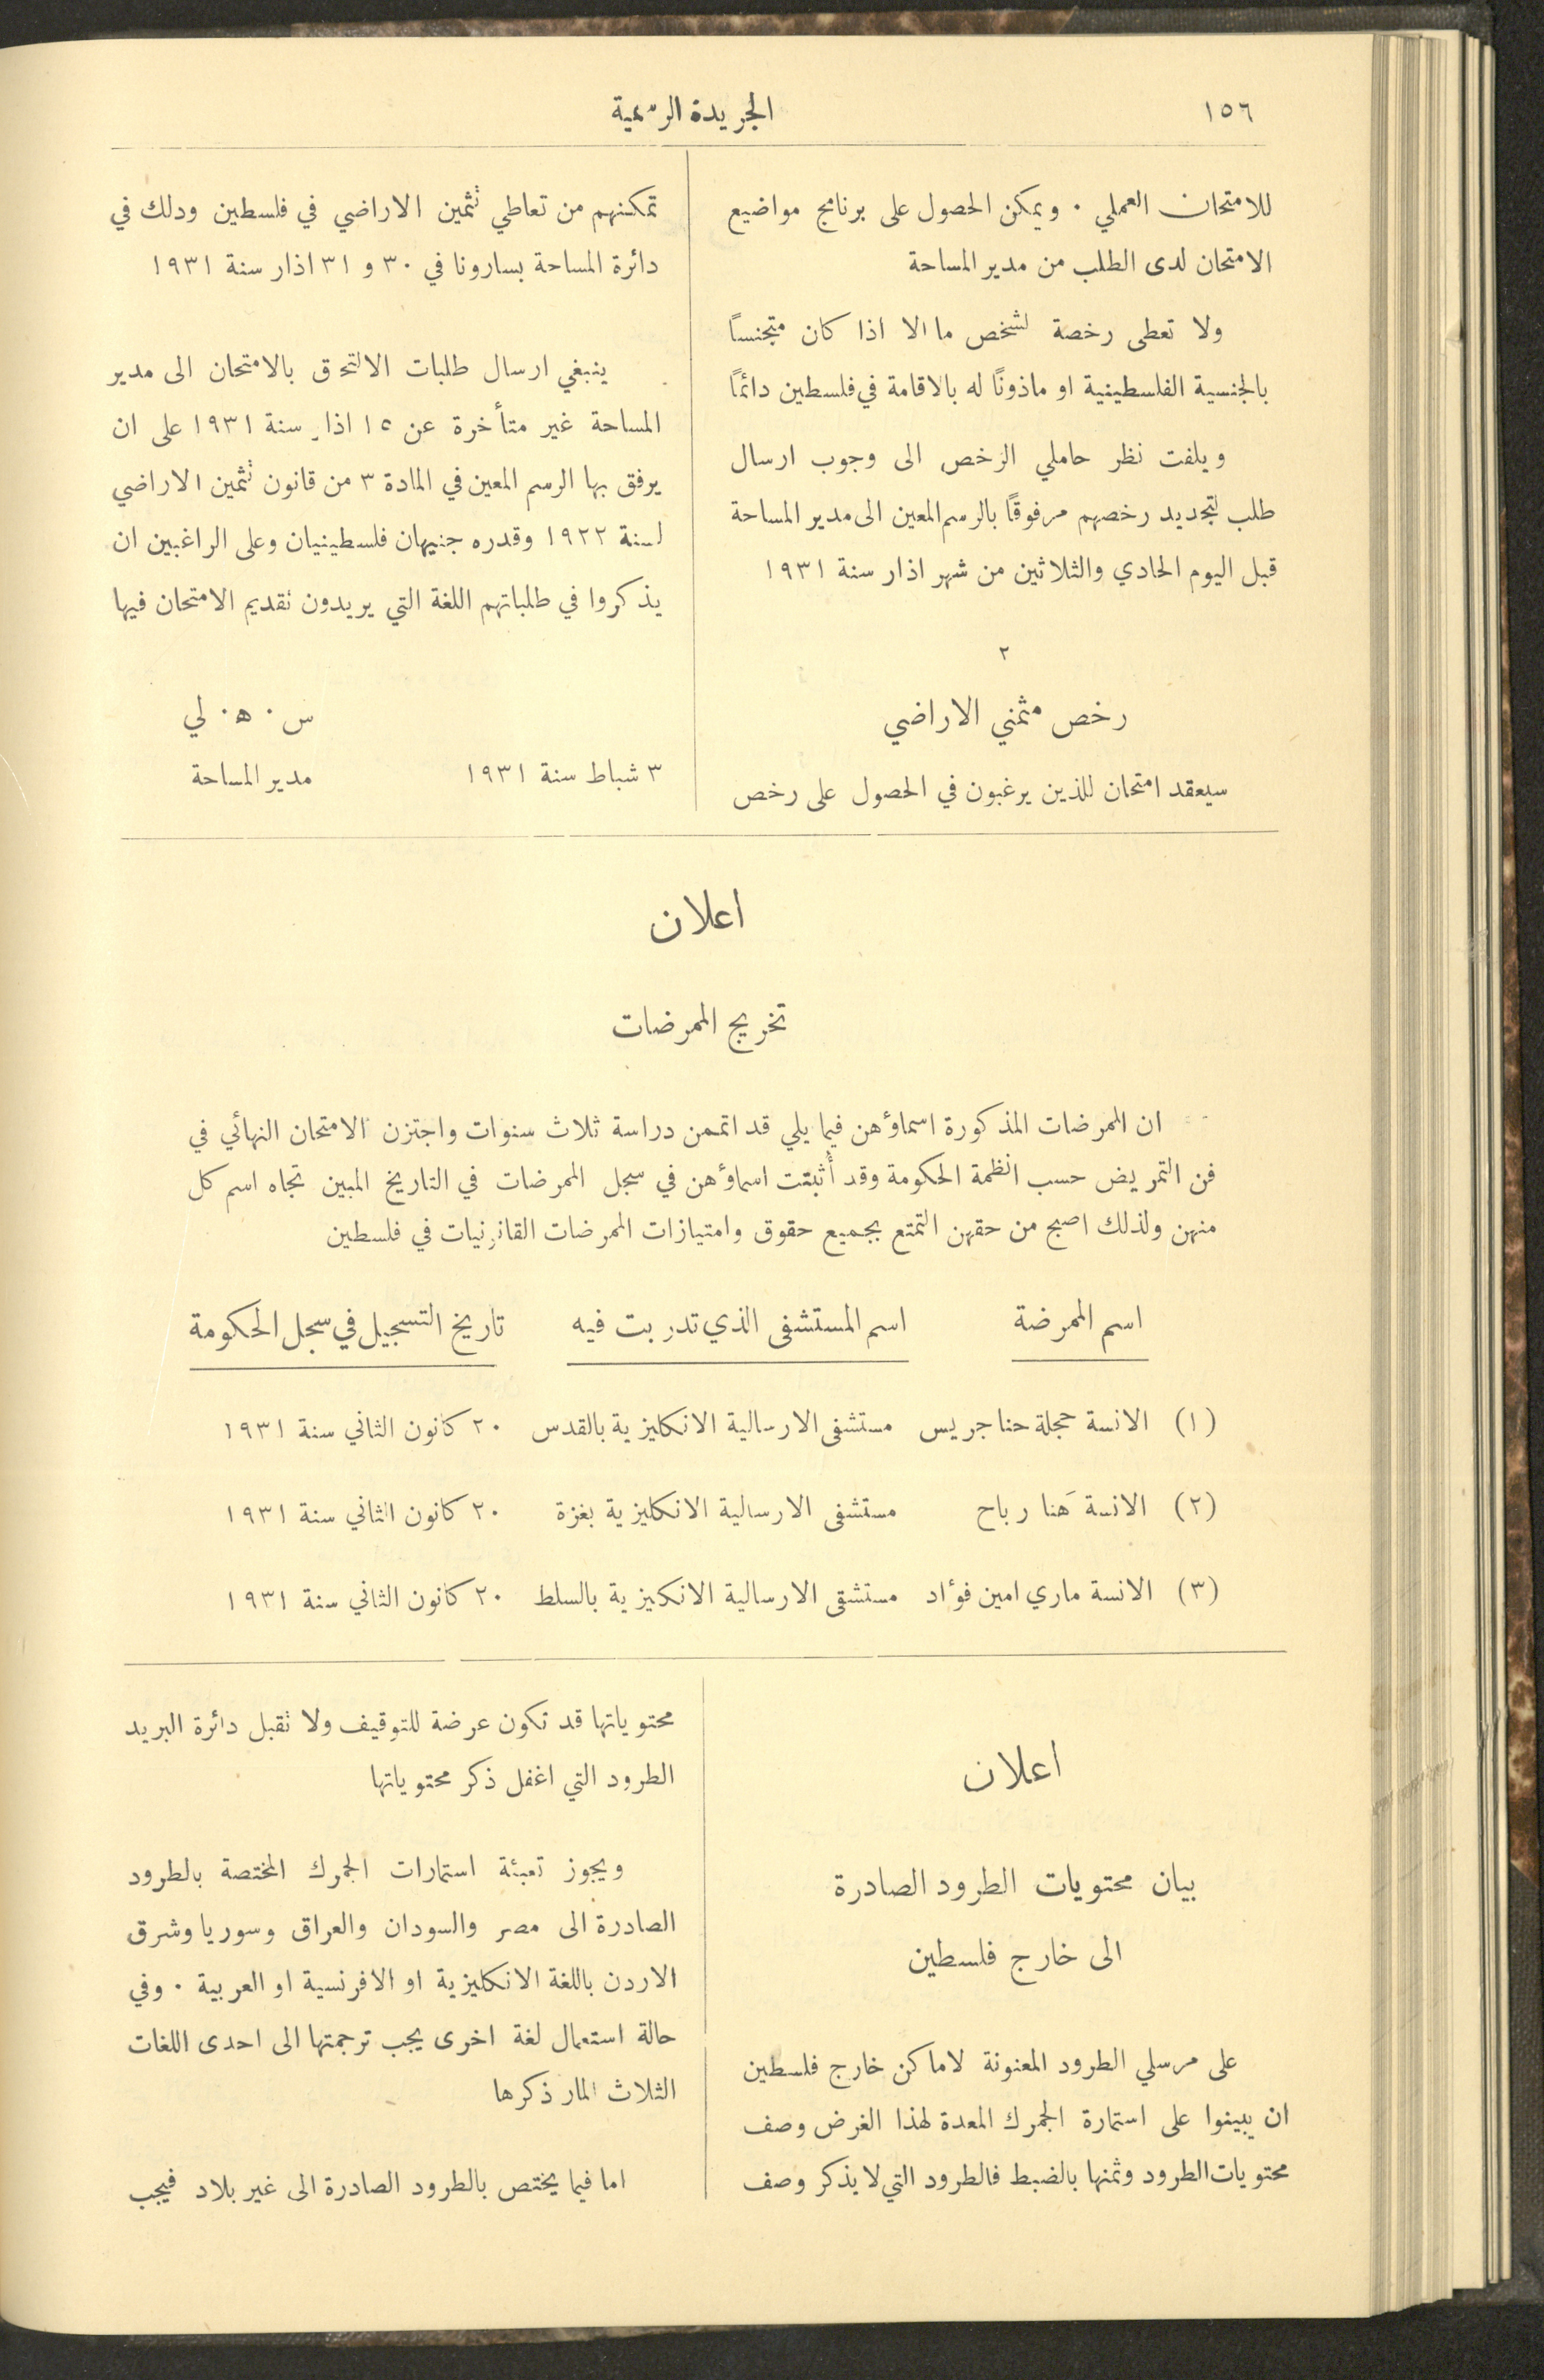 ١٥٦
الجريدة الرسمية
للامتحان العملي . ويمكن الحصول على برنامج مواضيع
الامتحان لدى الطلب من مدير المساحة
ولا تعطى رخصة لشخص ما الا اذا كان متجنساً
بالجنسية الفلسطينية او ماذوناً له بالاقامة في فلسطين دائماً
ويلفت نظر حاملي الرخص الى وجوب ارسال
طلب لتجديد رخصهم مرفوقاً بالرسم المعين الى مدير المساحة
قبل اليوم الحادي والثلاثين من شهر اذار سنة ١٩٣١
٢
رخص مثمني الاراضي
سيعقد امتحان للذين يرغبون في الحصول على رخص
تمكنهم من تعاطي تثمين الاراضي في فلسطين ودلك في
دائرة المساحة بسارونا في ٣٠ و ٣١ اذار سنة ١٩٣١
ينبغي ارسال طلبات الالتحق بالامتحان الى مدير
المساحة غير متأخرة عن ١٥ اذار سنة ١٩٣١ على ان
يرفق بها الرسم المعين في المادة ٣ من قانون تثمين الاراضي
لسنة ١٩٢٢ وقدره جنيهان فلسطينيان وعلى الراغبين ان
يذكروا في طلباتهم اللغة التي يريدون تقديم الامتحان فيها
س . ه . لي
٣ شباط سنة ١٩٣١ مدير المساحة
اعلان
تخريج الممرضات
ان الممرضات المذكورة اسماؤهن فيما يلي قد اتممن دراسة ثلاث سنوات واجتزن الامتحان النهائي في
فن التمريض حسب انظمة الحكومة وقد أثبتت اسماؤهن في سجل الممرضات في التاريخ المبين تجاه اسم كل
منهن ولذلك اصبح من حقهن التمتع بجميع حقوق وامتيازات الممرضات القانونيات في فلسطين
اسم الممرضة اسم المستشفى الذي تدربت فيه تاريخ التسجيل في سجل الحكومة
(١) الانسة حجلة حنا جريس مستشفى الارسالية الانكليزية بالقدس ٢٠ كانون الثاني سنة ١٩٣١
(٢) الانسة هَنا رباح مستشفى الارسالية الانكليزية بغزة ٢٠ كانون الثاني سنة ١٩٣١
(٣) الانسة ماري امين فؤاد مستشقى الارسالية الانكيزية بالسلط ٢٠ كانون الثاني سنة ١٩٣١
اعلان
بيان محتويات الطرود الصادرة
الى خارج فلسطين
على مرسلي الطرود المعنونة لاماكن خارج فلسطين
ان يبينوا على استمارة الجمرك المعدة لهذا الغرض وصف
محتويات الطرود وثمنها بالضبط فالطرود التي لا يذكر وصف
محتوياتها قد تكون عرضة للتوقيف ولا تقبل دائرة البريد
الطرود التي اغفل ذكر محتوياتها
ويجوز تعبئة استمارات الجمرك المختصة بالطرود
الصادرة الى مصر والسودان والعراق وسوريا وشرق
الاردن باللغة الانكليزية او الافرنسية او العربية . وفي
حالة استعمال لغة اخرى يجب ترجمتها الى احدى اللغات
الثلاث المار ذكرها
اما فيما يختص بالطرود الصادرة الى غير بلاد فيجب